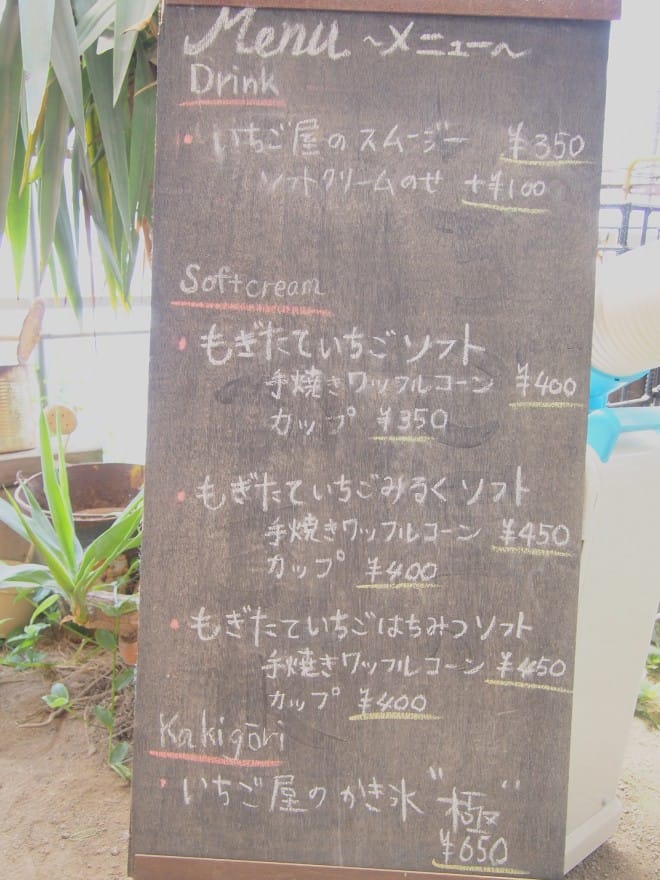 Menu ～メニュー～
Drink
・いちご屋のスムージー ¥350
ソフトクリームのせ +¥100
Softcream
・もぎたていちごソフト
手焼きワッフルコーン ¥400
カップ ¥350
・もぎたていちごみるくソフト
手焼きワッフルコーン ¥450
カップ ¥400
・もぎたていちごはちみつソフト
手焼きワッフルコーン ¥450
カップ ¥400
Kakigōri
・いちご屋のかき氷 "極"
¥650